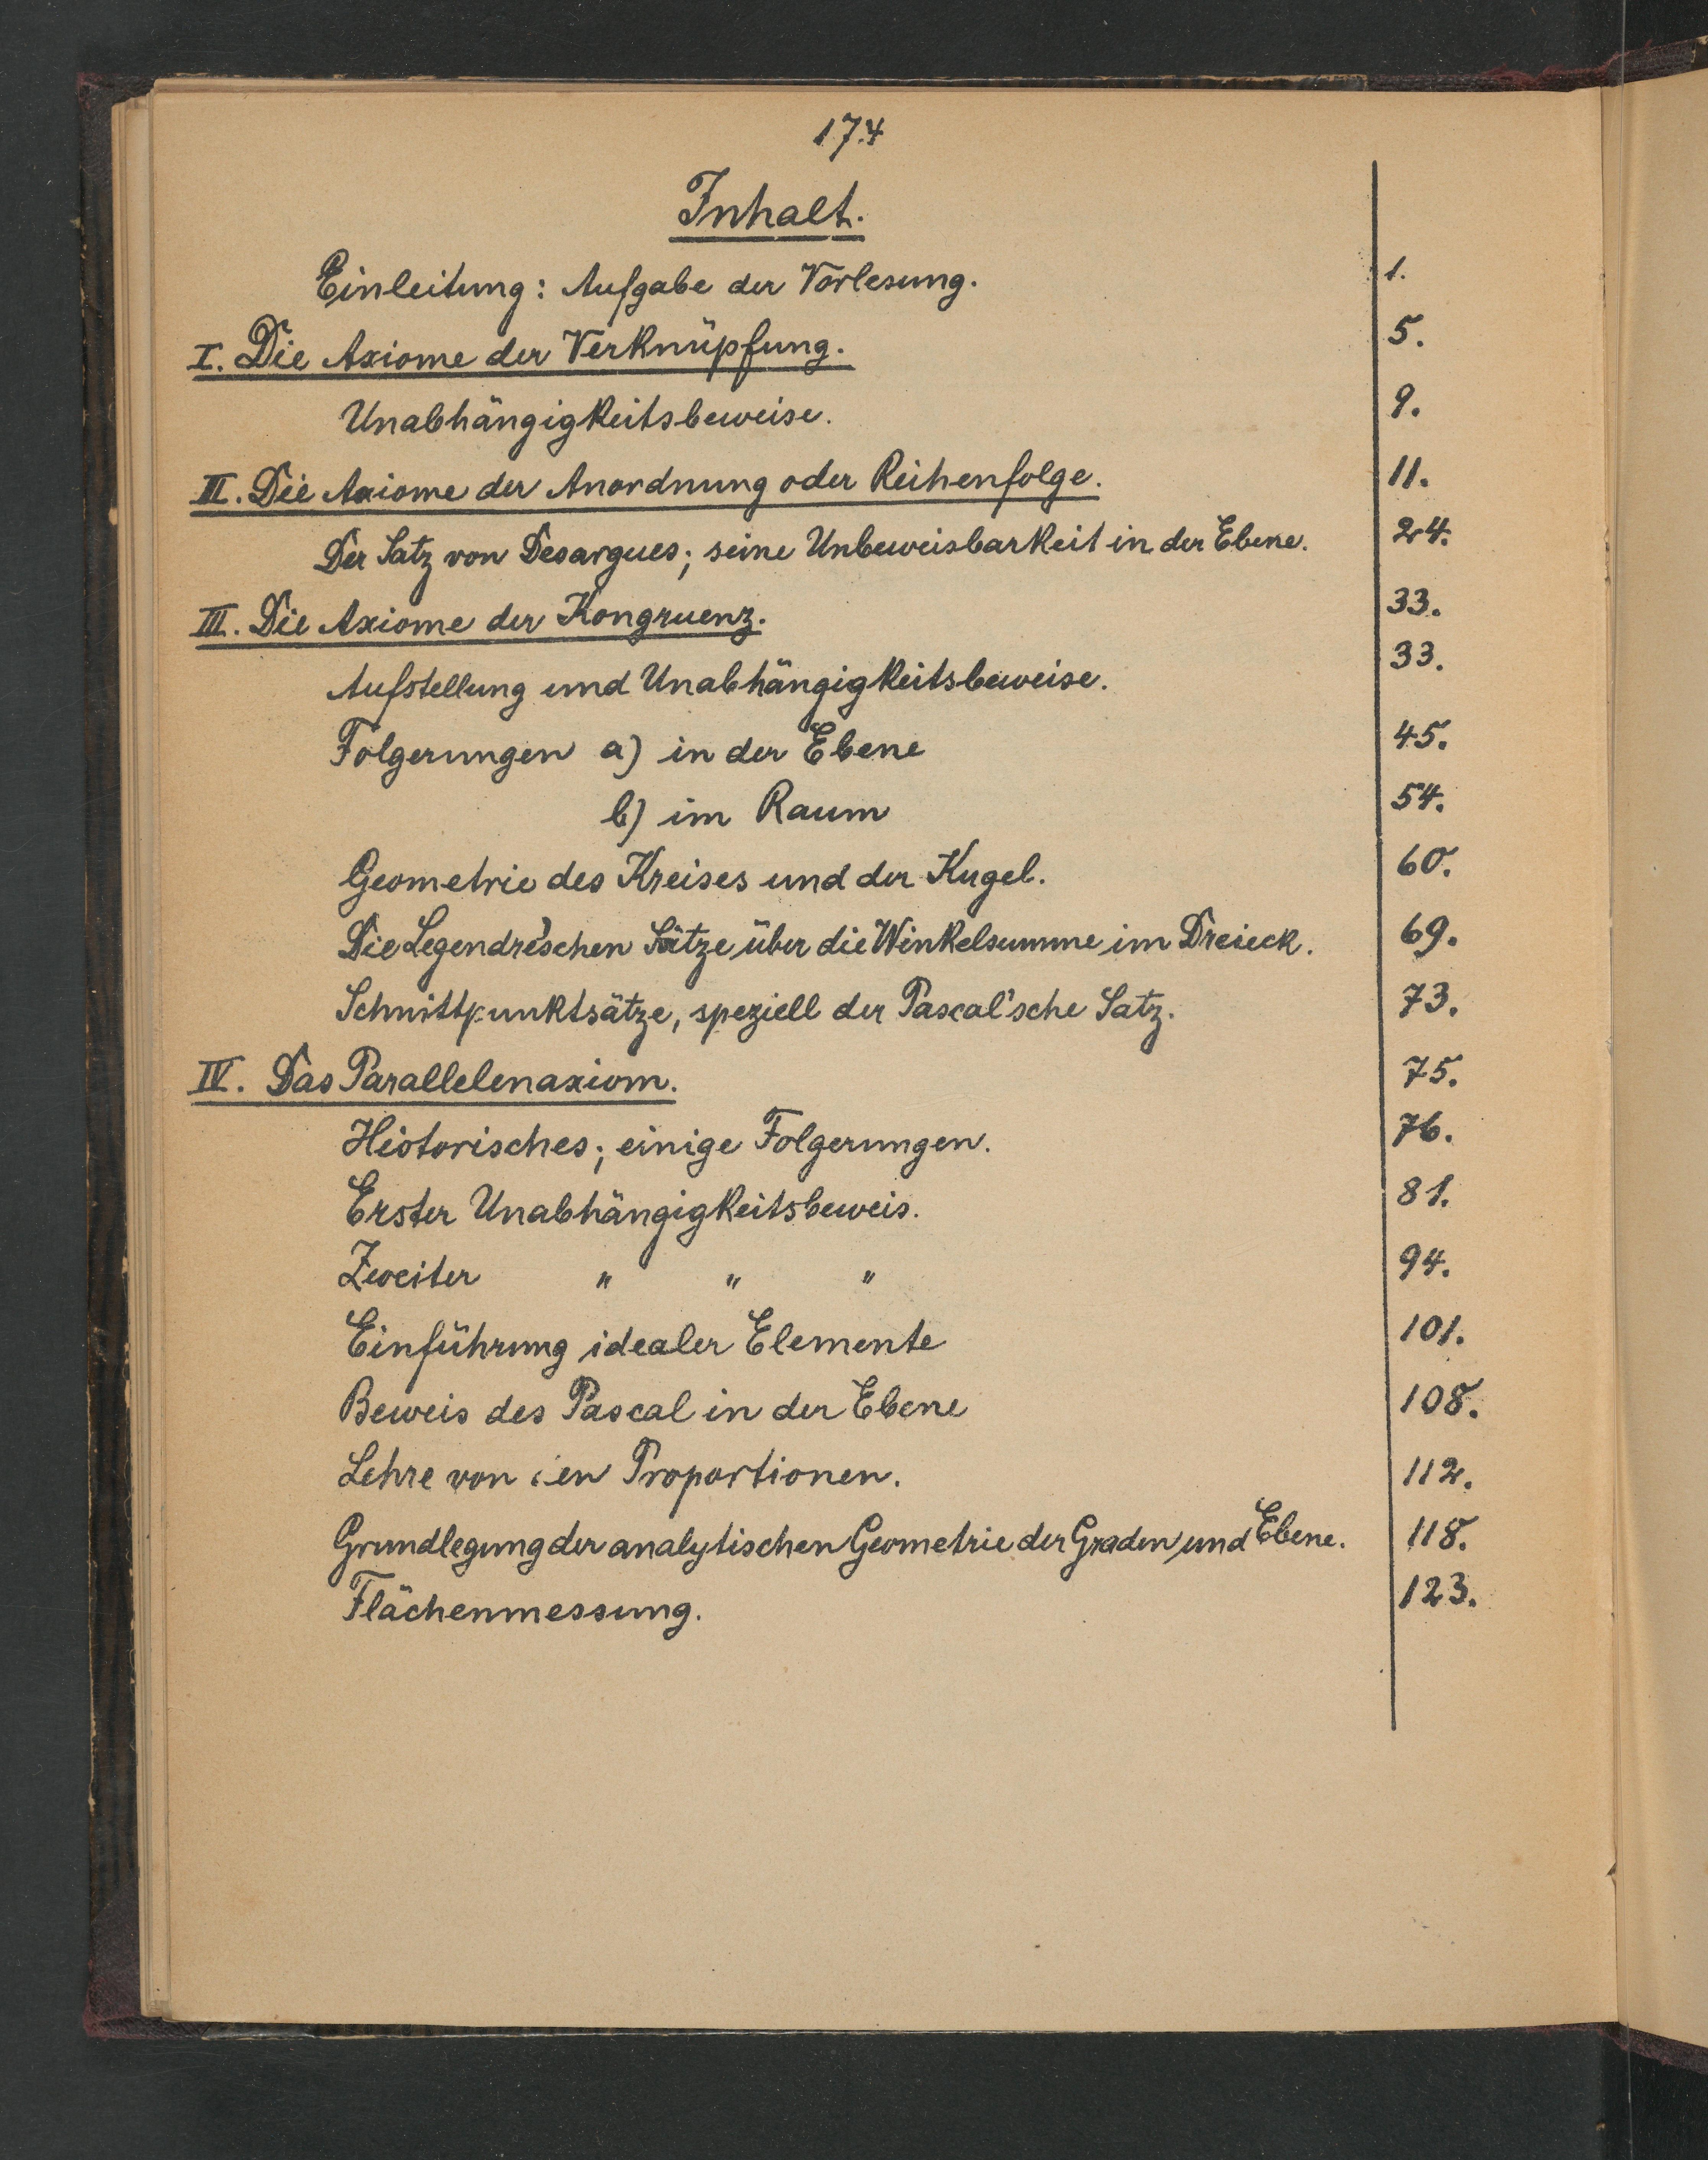 174
Inhalt.
Einleitung: Aufgabe der Vorlesung. 1.
I. Die Axiome der Verknüpfung. 5.
Unabhängigkeitsbeweise. 9.
II. Die Axiome der Anordnung oder Reihenfolge. 11.
Der Satz von Desargues; seine Unbeweisbarkeit in der Ebene. 24.
III. Die Axiome der Kongruenz. 33.
Aufstellung und Unabhängigkeitsbeweise. 33.
Folgerungen a) in der Ebene 45.
b) im Raum 54.
Geometrie des Kreises und der Kugel. 60.
Die Legendre'schen Sätze über die Winkelsumme im Dreieck. 69.
Schnittpunktsätze, speziell der Pascal'sche Satz. 73.
IV. Das Parallelenaxiom. 75.
Historisches; einige Folgerungen. 76.
Erster Unabhängigkeitsbeweis. 81.
Zweiter " " " 94.
Einführung idealer Elemente 101.
Beweis des Pascal in der Ebene 108.
Lehre von den Proportionen. 112.
Grundlegung der analytischen Geometrie der Graden und Ebene. 118.
Flächenmessung. 123.